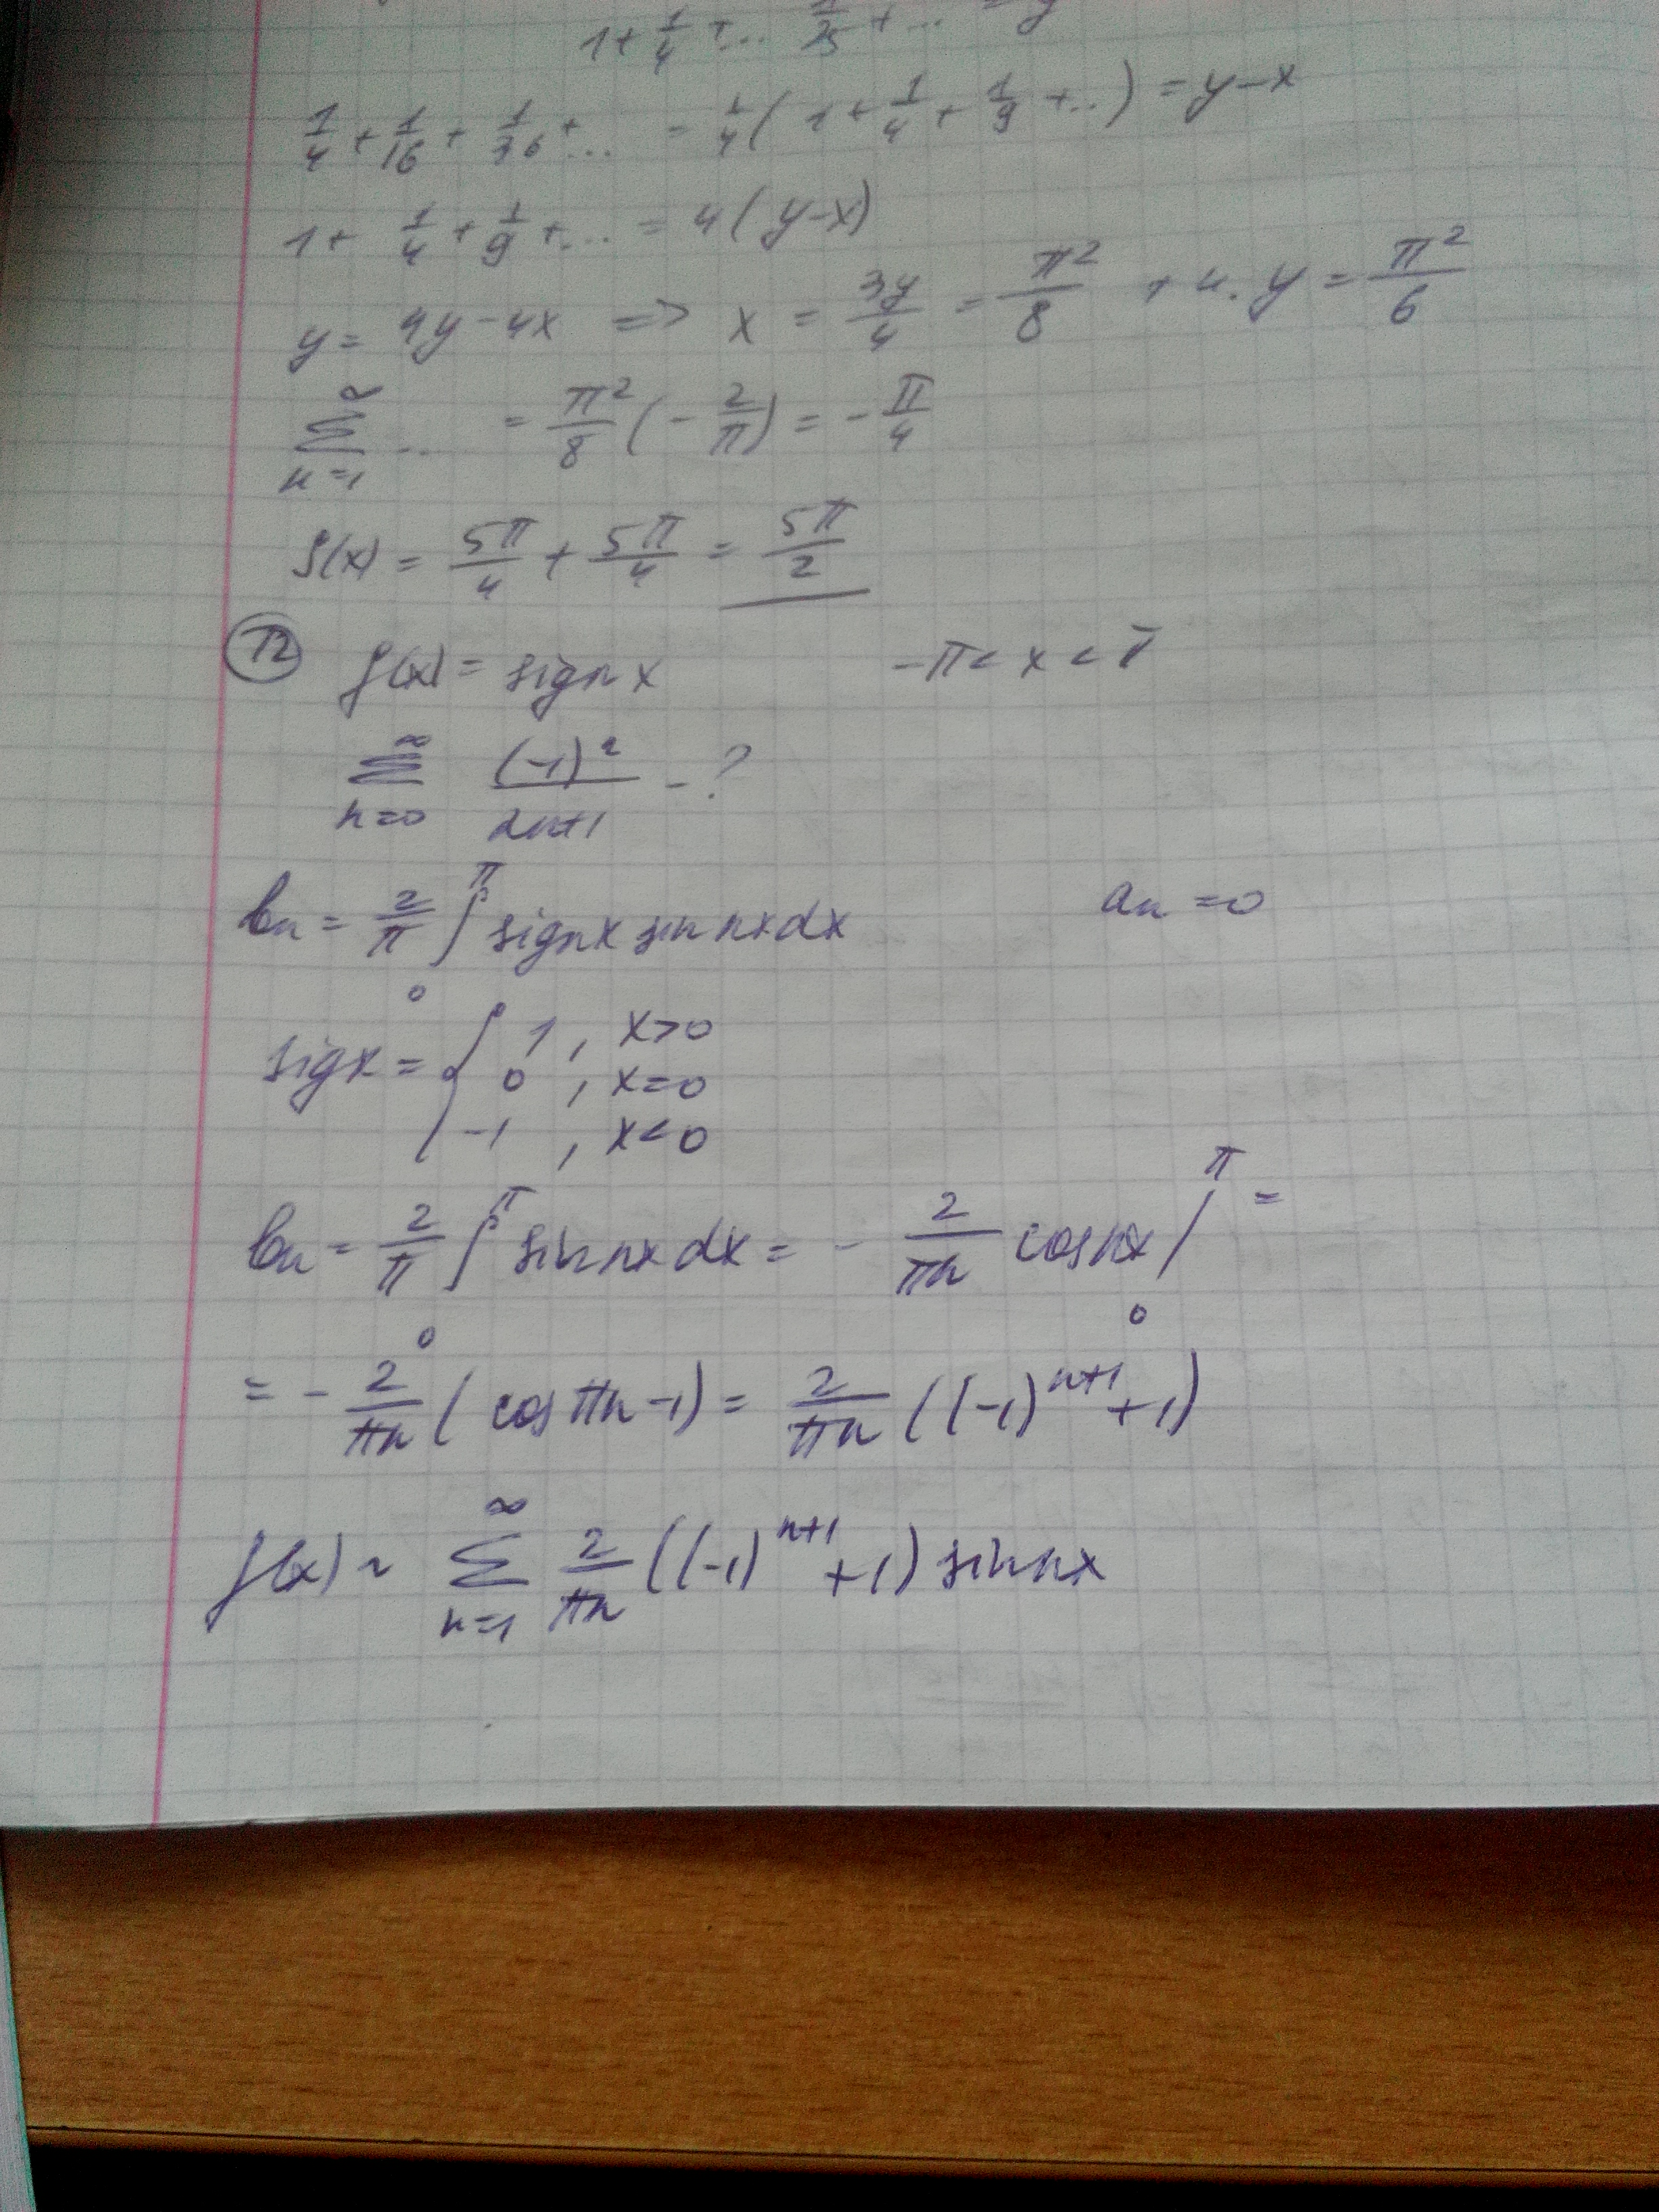 1 + 1/4 + ... 1/25 + ... = y
1/4 + 1/16 + 1/36 + ... = 1/4 ( 1 + 1/4 + 1/9 + ..) = y - x
1 + 1/4 + 1/9 + ... = 4 ( y - x)
y = 4y - 4x => x = 3y/4 = π²/8 т.к. y = π²/6
∞ ∑ n=1 .. = π²/8 (- 2/π) = - π/4
f(x) = 5π/4 + 5π/4 = 5π/2
T2 f(x) = sign x -π < x < π
∞ ∑ n=0 (-1)^n / 2n+1 - ?
bn = 2/π ∫₀^π sign x sin nx dx an = 0
sig x = { 1 , x>0
0 , x=0
-1 , x<0
bn = 2/π ∫₀^π sin nx dx = - 2/πn cos nx /₀^π =
= - 2/πn ( cos πn - 1) = 2/πn ((-1)^n+1 + 1)
f(x) ~ ∞ ∑ n=1 2/πn ((-1)^n+1 + 1) sin nx